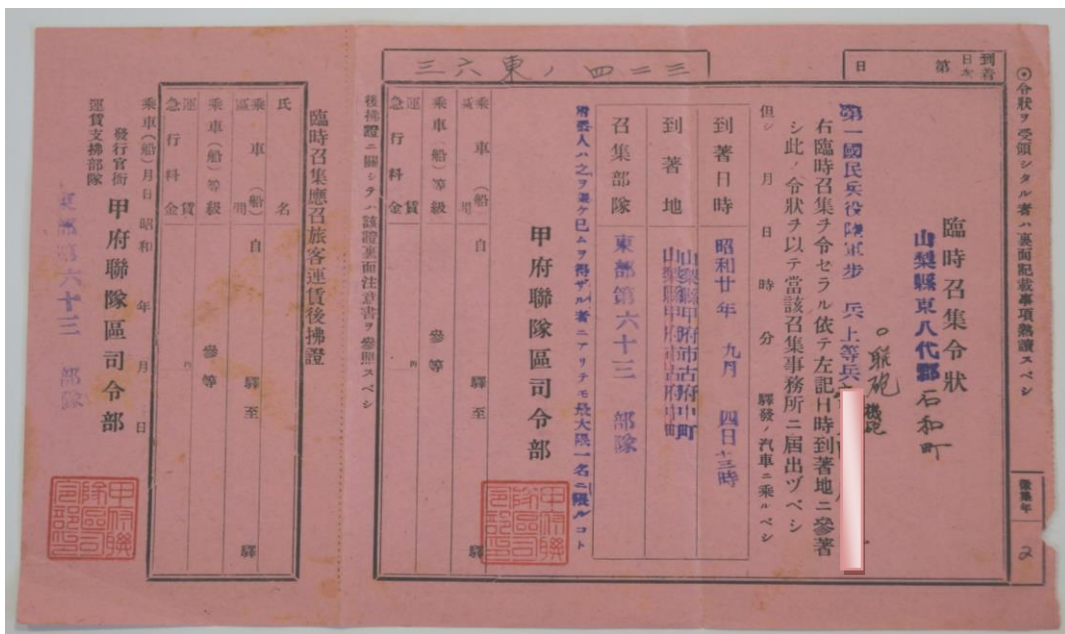 ◎令狀ヲ受領シタル者ハ裏面記載事項熟讀スベシ
徵集年 2
到着日次 第 日
三二四ノ東六三
臨時召集令狀
山梨縣東八代郡石和町
第一國民兵役陸軍步兵上等兵
右臨時召集ヲ令セラル依テ左記日時到著地ニ參著
シ此ノ令狀ヲ以テ當該召集事務所ニ屆出ヅベシ
但シ 月 日 時 分 驛發ノ汽車ニ乘ルベシ
到著日時 昭和廿年 九月 四日 十三時
到著地 山梨縣甲府市古府中町
召集部隊 東部第六十三 部隊
已ムヲ得ザル者ニアリテモ最大限一名ニ限ルコト
甲府聯隊區司令部
甲府聯隊區司令部印
乘車(船)區間 自 驛至 驛
乘車(船)等級 參等
運賃
急行料金
後拂證ニ關シテハ該證裏面注意書ヲ參照スベシ
臨時召集應召旅客運賃後拂證
氏名
乘車(船)區間 自 驛至 驛
乘車(船)等級 參等
運賃
急行料金
乘車(船)月日 昭和 年 月 日
發行官衙 甲府聯隊區司令部
運賃支拂部隊
東部第六十三 部隊
甲府聯隊區司令部印